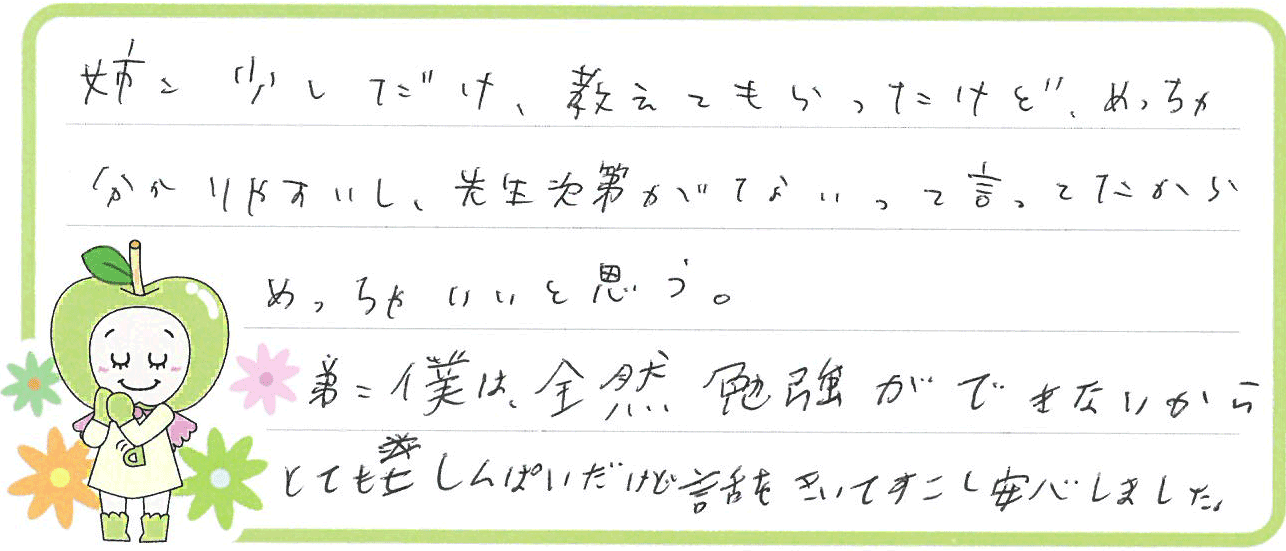 姉：少しだけ、教えてもらったけど、めっちゃ
分かりやすいし、先生次第がてないって言ってたから
めっちゃいいと思う。
弟：僕は、全然勉強ができないから
とてもしんぱいだけど話をきいてすこし安心しました。